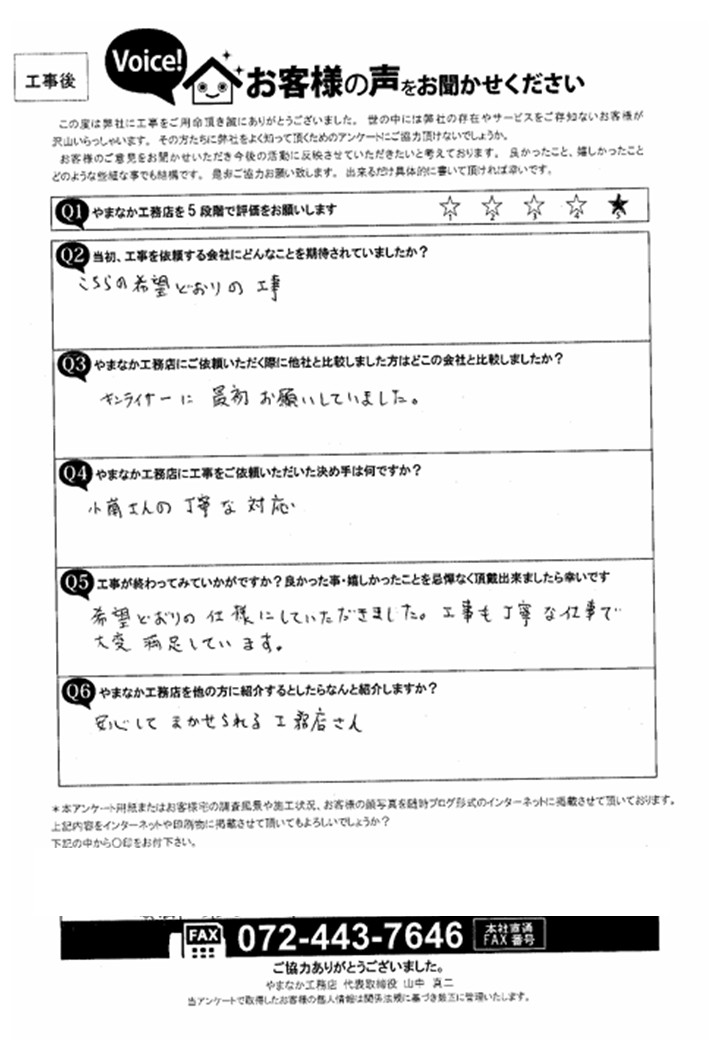 工事後
Voice!
お客様の声をお聞かせください
この度は弊社に工事をご用命頂き誠にありがとうございました。世の中には弊社の存在やサービスをご存知ないお客様が
沢山いらっしゃいます。その方たちに弊社をよく知って頂くためのアンケートにご協力頂けないでしょうか。
お客様のご意見をお聞かせいただき今後の活動に反映させていただきたいと考えております。良かったこと、嬉しかったこと
どのような些細な事でも結構です。是非ご協力お願い致します。出来るだけ具体的に書いて頂ければ幸いです。
Q1 やまなか工務店を5段階で評価をお願いします
1 2 3 4 5
Q2 当初、工事を依頼する会社にどんなことを期待されていましたか？
こちらの希望どおりの工事
Q3 やまなか工務店にご依頼いただく際に他社と比較しました方はどこの会社と比較しましたか？
キンライサーに 最初お願いしていました。
Q4 やまなか工務店に工事をご依頼いただいた決め手は何ですか？
小南さんの丁寧な対応
Q5 工事が終わってみていかがですか？良かった事・嬉しかったことを忌憚なく頂戴出来ましたら幸いです
希望どおりの仕様にしていただきました。工事も丁寧な仕事で
大変満足しています。
Q6 やまなか工務店を他の方に紹介するとしたらなんと紹介しますか？
安心してまかせられる工務店さん
＊本アンケート用紙またはお客様宅の調査風景や施工状況、お客様の顔写真を随時ブログ形式のインターネットに掲載させて頂いております。
上記内容をインターネットや印刷物に掲載させて頂いてもよろしいでしょうか？
下記の中から〇印をお付下さい。
FAX 072-443-7646 本社直通
FAX番号
ご協力ありがとうございました。
やまなか工務店 代表取締役 山中 真二
当アンケートで取得したお客様の個人情報は関係法規に基づき厳正に管理いたします。